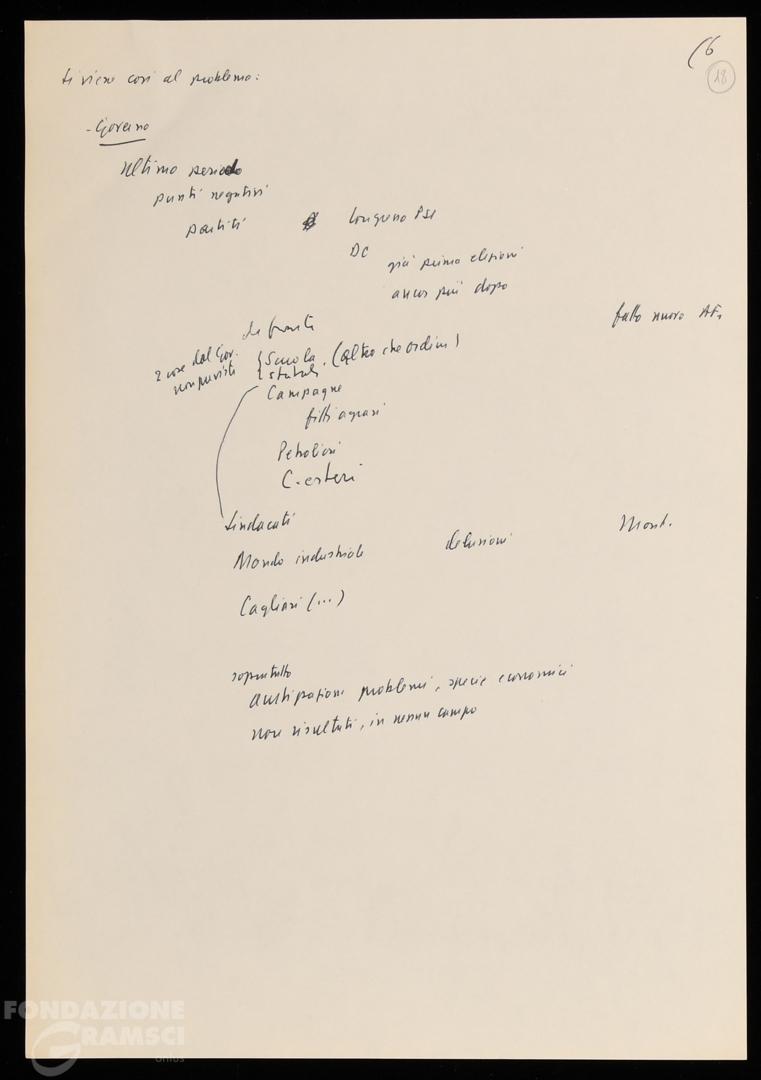 (6
18
Si viene così al problema:
- Governo
ultimo periodo
punti negativi
partiti Congresso PSI
DC
già prima elezioni
ancor più dopo
di fronte fatto nuovo
2 cose dal Gov. non previste { Scuola. (altro che ordini)
statali
Campagne
fitti agrari
Petrolieri
C. esteri
Sindacati
Mondo industriale delusioni Mont.
Cagliari (...)
soprattutto
problemi, specie economici
non risultati, in nessun campo
FONDAZIONE
GRAMSCI
onlus